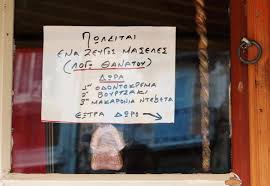 ΠΩΛΕΙΤΑΙ
ΕΝΑ ΖΕΥΓΟΣ ΜΑΣΕΛΕΣ
(ΛΟΓΩ ΘΑΝΑΤΟΥ)
ΔΩΡΑ
1ον ΟΔΟΝΤΟΚΡΕΜΑ
2ον ΒΟΥΡΤΣΑΚΙ
3ον ΜΑΚΑΡΟΝΙΑ
ΕΞΤΡΑ ΔΩΡΟ